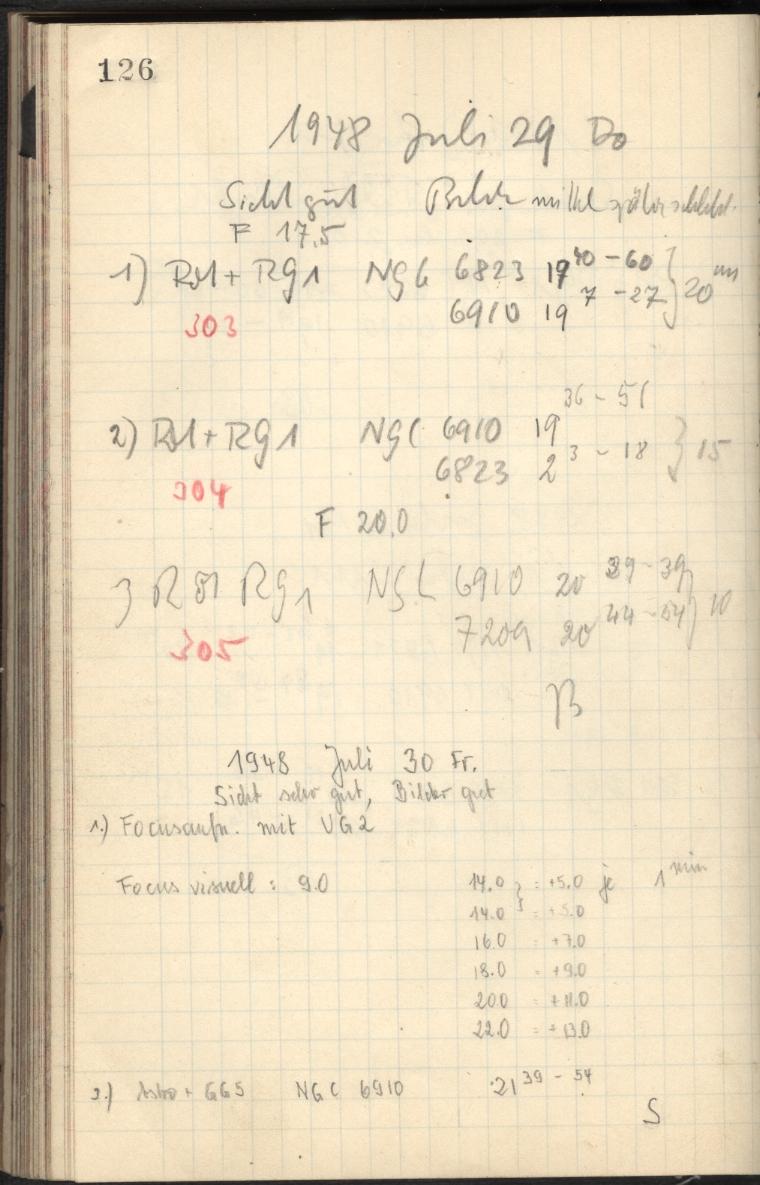 126
1948 Juli 29 Do
Sicht gut Bilder mittel später schlecht.
F 17,5
1) Rot + RG1 NGC 6823 19 40 - 60 } 20 m
6910 19 7 - 27
303
36 - 51
2) Rot + RG1 NGC 6910 19 } 15
6823 2 3 - 18
304
F 20,0
3 Rot RG1 NGC 6910 20 29 - 39 } 10
7209 20 44 - 54
305
B
1948 Juli 30 Fr.
Sicht sehr gut, Bilder gut
1.) Focusaufn. mit UG2
Focus visuell : 9.0 14.0 } = +5.0 je 1 min
14.0 = +5.0
16.0 = +7.0
18.0 = +9.0
20.0 = +11.0
22.0 = +13.0
2.) Astro + GG5 NGC 6910 21 39 - 54
S